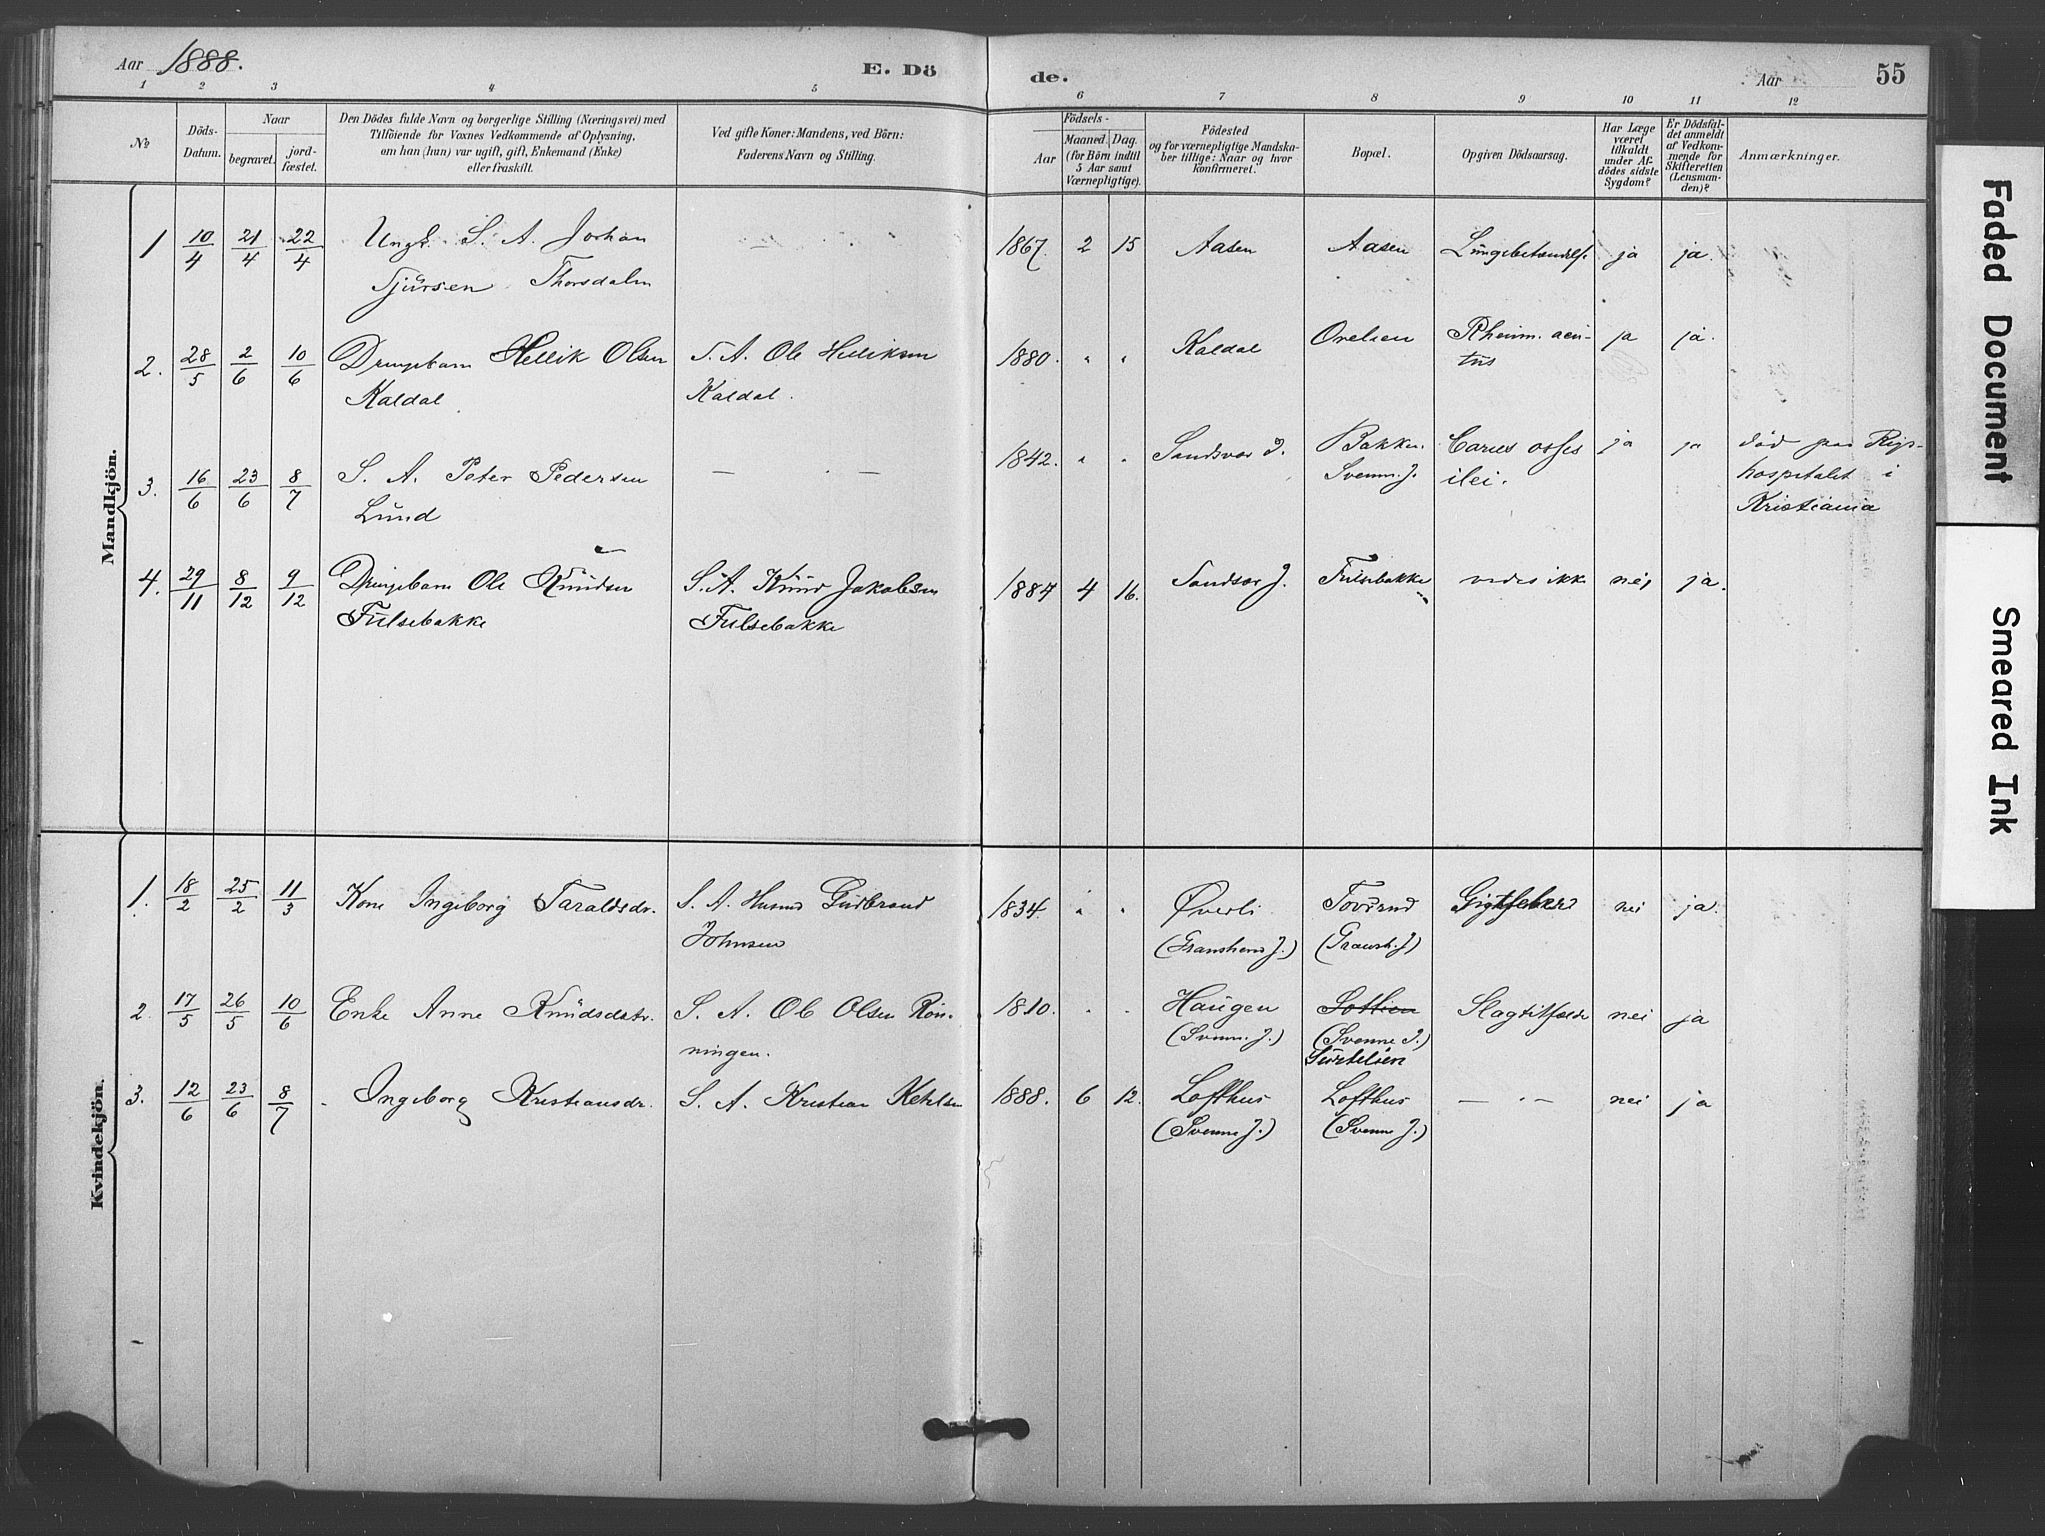 Aar 1888. E. Döde. Aar 55
1 2 3 4 5 6 7 8 9 10 11 12
No
Döds-
Datum.
Naar
begravet.
jord-
fæstet.
Den Dödes fulde Navn og borgerlige Stilling (Næringsvei) med
Tilföiende for Voxnes Vedkommende af Oplysning,
om han (hun) var ugift, gift, Enkemand (Enke)
eller fraskilt.
Ved gifte Koner: Mandens, ved Börn:
Faderens Navn og Stilling.
Födsels-
Aar
Maaned.
Dag.
(for Börn indtil
5 Aar samt
Værnepligtige).
Födested
og for værnepligtige Mandska-
ber tillige: Naar og hvor
konfirmeret.
Bopæl.
Opgiven Dödsaarsag.
Har Læge
været
tilkaldt
under Af-
dödes sidste
Sygdom?
Er Dödsfal-
det anmeldt
af Vedkom-
mende for
Skifteretten
(Lensman-
den)?
Anmærkninger.
Mandkjön.
1 10/4 21/4 22/4 Ungk. S. A. Johan 1867. 2 15 Aasen Aasen Lungebetændelse ja ja.
Tjursen Thorsdalen
2. 28/5 2/6 10/6 Drengebarn Hellik Olsen S. A. Ole Helliksen 1880. " " Kaldal Rheum. acu- ja ja.
Kaldal Kaldal. tus
3. 16/6 23/6 8/7 S. A. Peter Pedersen — " — 1842. " " Sandsvær J. Bakken Caries osses ja ja död paa Rigs-
Lund Svenne J. ilei. hospitalet i
Kristiania
4. 29/11 8/12 9/12 Drengebarn Ole Knudsen S. A. Knud Jakobsen 1884 4 16. Sandsvær J. Fulsebakke vides ikke nei ja.
Fulsebakke Fulsebakke
Kvindekjön.
1. 18/2 25/2 11/3 Kone Ingeborg Taraldsdr. S. A. Husmd Gudbrand 1834. " " Överli Gigtfeber nei ja.
Johnsen (Gransherred J.) (Gransh. J.)
2. 17/5 26/5 10/6 Enke Anne Knudsdatr. S. A. Ole Olsen Rön- 1810. " " Haugen Slagtilfælde nei ja
ningen. (Svenne J.) (Svenne J.)
Surtelien
3. 12/6 23/6 8/7 - Ingeborg Kristiansdr. S. A. Kristian 1888. 6 12. Lofthus Lofthus — " — nei ja
(Svenne J.) (Svenne J.)
Faded Document
Smeared Ink